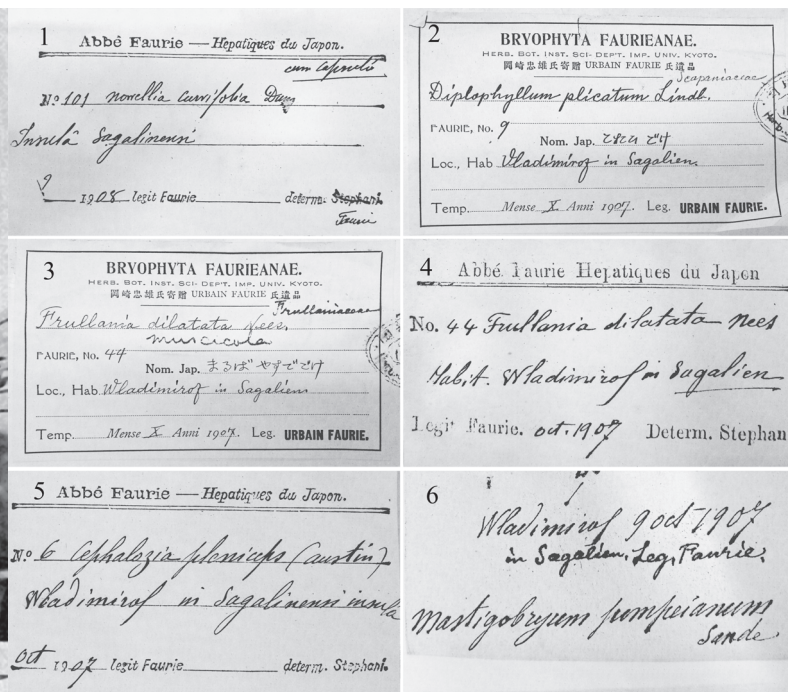 1
Abbé Faurie — Hepatiques du Japon.
cum capsulis
No 101 nowellia curvifolia Dum
Insulâ Sagalinensi
1908 legit Faurie determ. Stephani.
Faurie
2
BRYOPHYTA FAURIEANAE.
HERB. BOT. INST. SCI- DEP'T. IMP. UNIV. KYOTO.
岡崎忠雄氏寄贈 URBAIN FAURIE 氏遺品
Scapaniaceae
Diplophyllum plicatum Lindb.
FAURIE, No. 9
Nom. Jap.
Loc., Hab Wladimirof in Sagalien.
Temp. Mense X Anni 1907. Leg. URBAIN FAURIE.
3
BRYOPHYTA FAURIEANAE.
HERB. BOT. INST. SCI- DEP'T. IMP. UNIV. KYOTO.
岡崎忠雄氏寄贈 URBAIN FAURIE 氏遺品
Frullaniaceae
Frullania dilatata Nees.
muscicola
FAURIE, No. 44
Nom. Jap. まるばやすでごけ
Loc., Hab. Wladimirof in Sagalien
Temp. Mense X Anni 1907. Leg. URBAIN FAURIE.
4
Abbé Faurie Hepatiques du Japon
No. 44 Frullania dilatata Nees
Habit. Wladimirof in Sagalien
Legit Faurie. oct. 1907 Determ. Stephan
5
Abbé Faurie — Hepatiques du Japon.
No 6 Cephalozia pleniceps (Austin)
Wladimirof in Sagalinensi insula
Oct 1907 legit Faurie determ. Stephani.
6
Wladimirof 9 oct 1907
in Sagalien. Leg. Faurie.
Mastigobryum pompeianum
Sande.